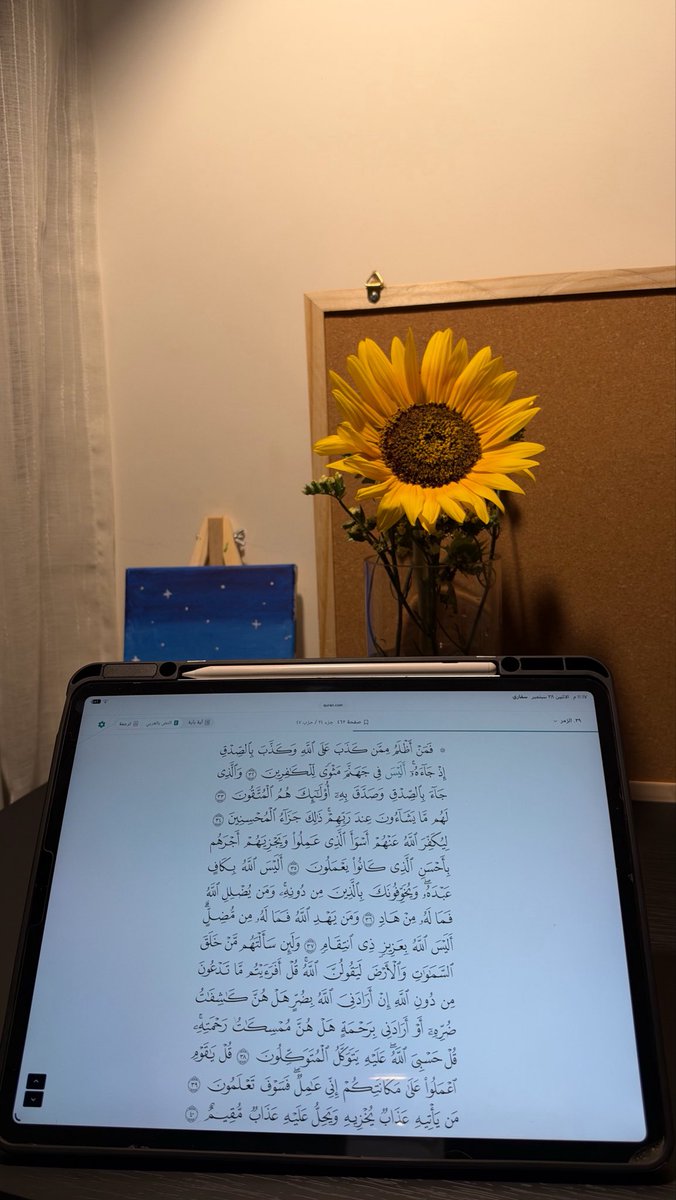 ١١:١٤ م الاثنين ٢٨ سبتمبر سفاري
quran.com
٣٩. الزمر
صفحة ٤٦٢ جزء ٢٤ / حزب ٤٧
آية بآية
النص بالعربي
الترجمة
۞ فَمَنْ أَظْلَمُ مِمَّن كَذَبَ عَلَى ٱللَّهِ وَكَذَّبَ بِٱلصِّدْقِ
إِذْ جَآءَهُۥٓ ۚ أَلَيْسَ فِى جَهَنَّمَ مَثْوًى لِّلْكَـٰفِرِينَ ٣٢ وَٱلَّذِى
جَآءَ بِٱلصِّدْقِ وَصَدَّقَ بِهِۦٓ ۙ أُو۟لَـٰٓئِكَ هُمُ ٱلْمُتَّقُونَ ٣٣
لَهُم مَّا يَشَآءُونَ عِندَ رَبِّهِمْ ۚ ذَٰلِكَ جَزَآءُ ٱلْمُحْسِنِينَ ٣٤
لِيُكَفِّرَ ٱللَّهُ عَنْهُمْ أَسْوَأَ ٱلَّذِى عَمِلُوا۟ وَيَجْزِيَهُمْ أَجْرَهُم
بِأَحْسَنِ ٱلَّذِى كَانُوا۟ يَعْمَلُونَ ٣٥ أَلَيْسَ ٱللَّهُ بِكَافٍ
عَبْدَهُۥ ۖ وَيُخَوِّفُونَكَ بِٱلَّذِينَ مِن دُونِهِۦ ۚ وَمَن يُضْلِلِ ٱللَّهُ
فَمَا لَهُۥ مِنْ هَادٍ ٣٦ وَمَن يَهْدِ ٱللَّهُ فَمَا لَهُۥ مِن مُّضِلٍّ ۗ
أَلَيْسَ ٱللَّهُ بِعَزِيزٍ ذِى ٱنتِقَامٍ ٣٧ وَلَئِن سَأَلْتَهُم مَّنْ خَلَقَ
ٱلسَّمَـٰوَٰتِ وَٱلْأَرْضَ لَيَقُولُنَّ ٱللَّهُ ۚ قُلْ أَفَرَءَيْتُم مَّا تَدْعُونَ
مِن دُونِ ٱللَّهِ إِنْ أَرَادَنِىَ ٱللَّهُ بِضُرٍّ هَلْ هُنَّ كَـٰشِفَـٰتُ
ضُرِّهِۦٓ أَوْ أَرَادَنِى بِرَحْمَةٍ هَلْ هُنَّ مُمْسِكَـٰتُ رَحْمَتِهِۦ ۚ
قُلْ حَسْبِىَ ٱللَّهُ ۖ عَلَيْهِ يَتَوَكَّلُ ٱلْمُتَوَكِّلُونَ ٣٨ قُلْ يَـٰقَوْمِ
ٱعْمَلُوا۟ عَلَىٰ مَكَانَتِكُمْ إِنِّى عَـٰمِلٌ ۖ فَسَوْفَ تَعْلَمُونَ ٣٩
مَن يَأْتِيهِ عَذَابٌ يُخْزِيهِ وَيَحِلُّ عَلَيْهِ عَذَابٌ مُّقِيمٌ ٤٠